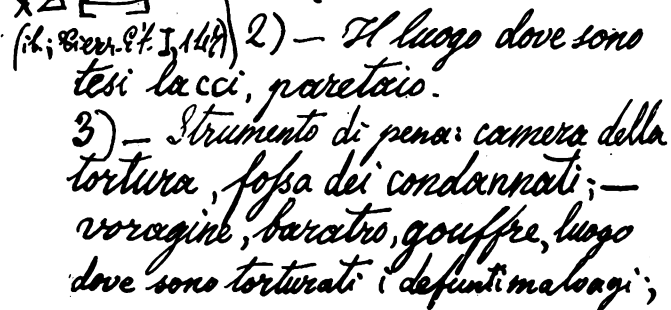 (ib.; Pierr. Ét. I, 147) 2) — Il luogo dove sono
tesi lacci, paretaio.
3) — Strumento di pena: camera della
tortura, fossa dei condannati; —
voragine, baratro, gouffre, luogo
dove sono torturati i defunti malvagi;